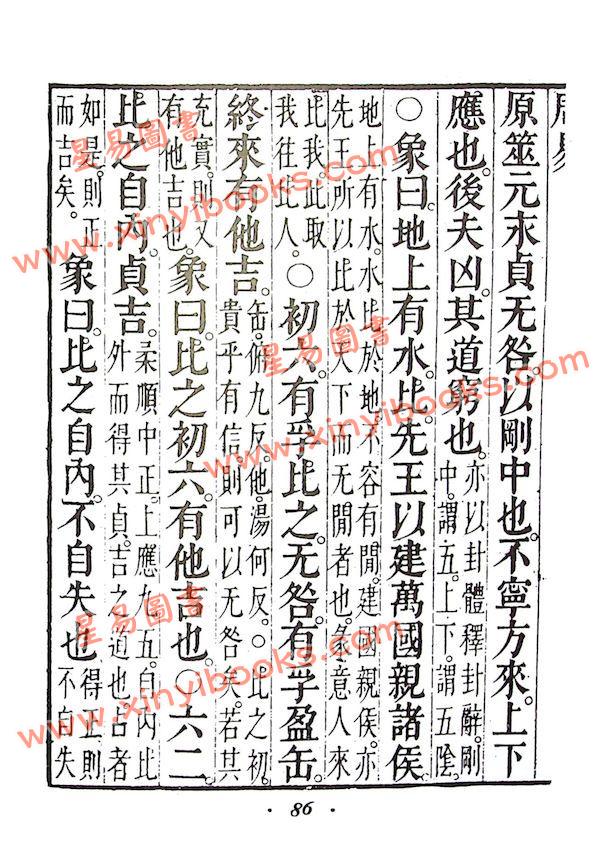 原筮元永貞无咎。以剛中也。不寧方來。上下
應也。後夫凶。其道窮也。
亦以卦體釋卦辭。剛
中。謂五。上下。謂五陰。
○象曰。地上有水。比。先王以建萬國親諸侯。
地上有水。水比於地。不容有閒。建國親侯。亦
先王所以比於天下而无閒者也。彖意人來
比我。此取
我往比人。
○初六。有孚比之。无咎。有孚盈缶。
終來有他吉。
缶。俯九反。他。湯何反。○比之初。
貴乎有信。則可以无咎矣。若其
充實。則又
有他吉也。
象曰。比之初六。有他吉也。○六二
比之自內。貞吉。
柔順中正。上應九五。自內比
外而得其貞。吉之道也。占者
如是。則正
而吉矣。
象曰。比之自內。不自失也
得正則
不自失
· 86 ·
星易圖書
www.xinyibooks.com
星易圖書
www.xinyibooks.com
星易圖書
www.xinyibooks.com
星易圖書
www.xinyibooks.com